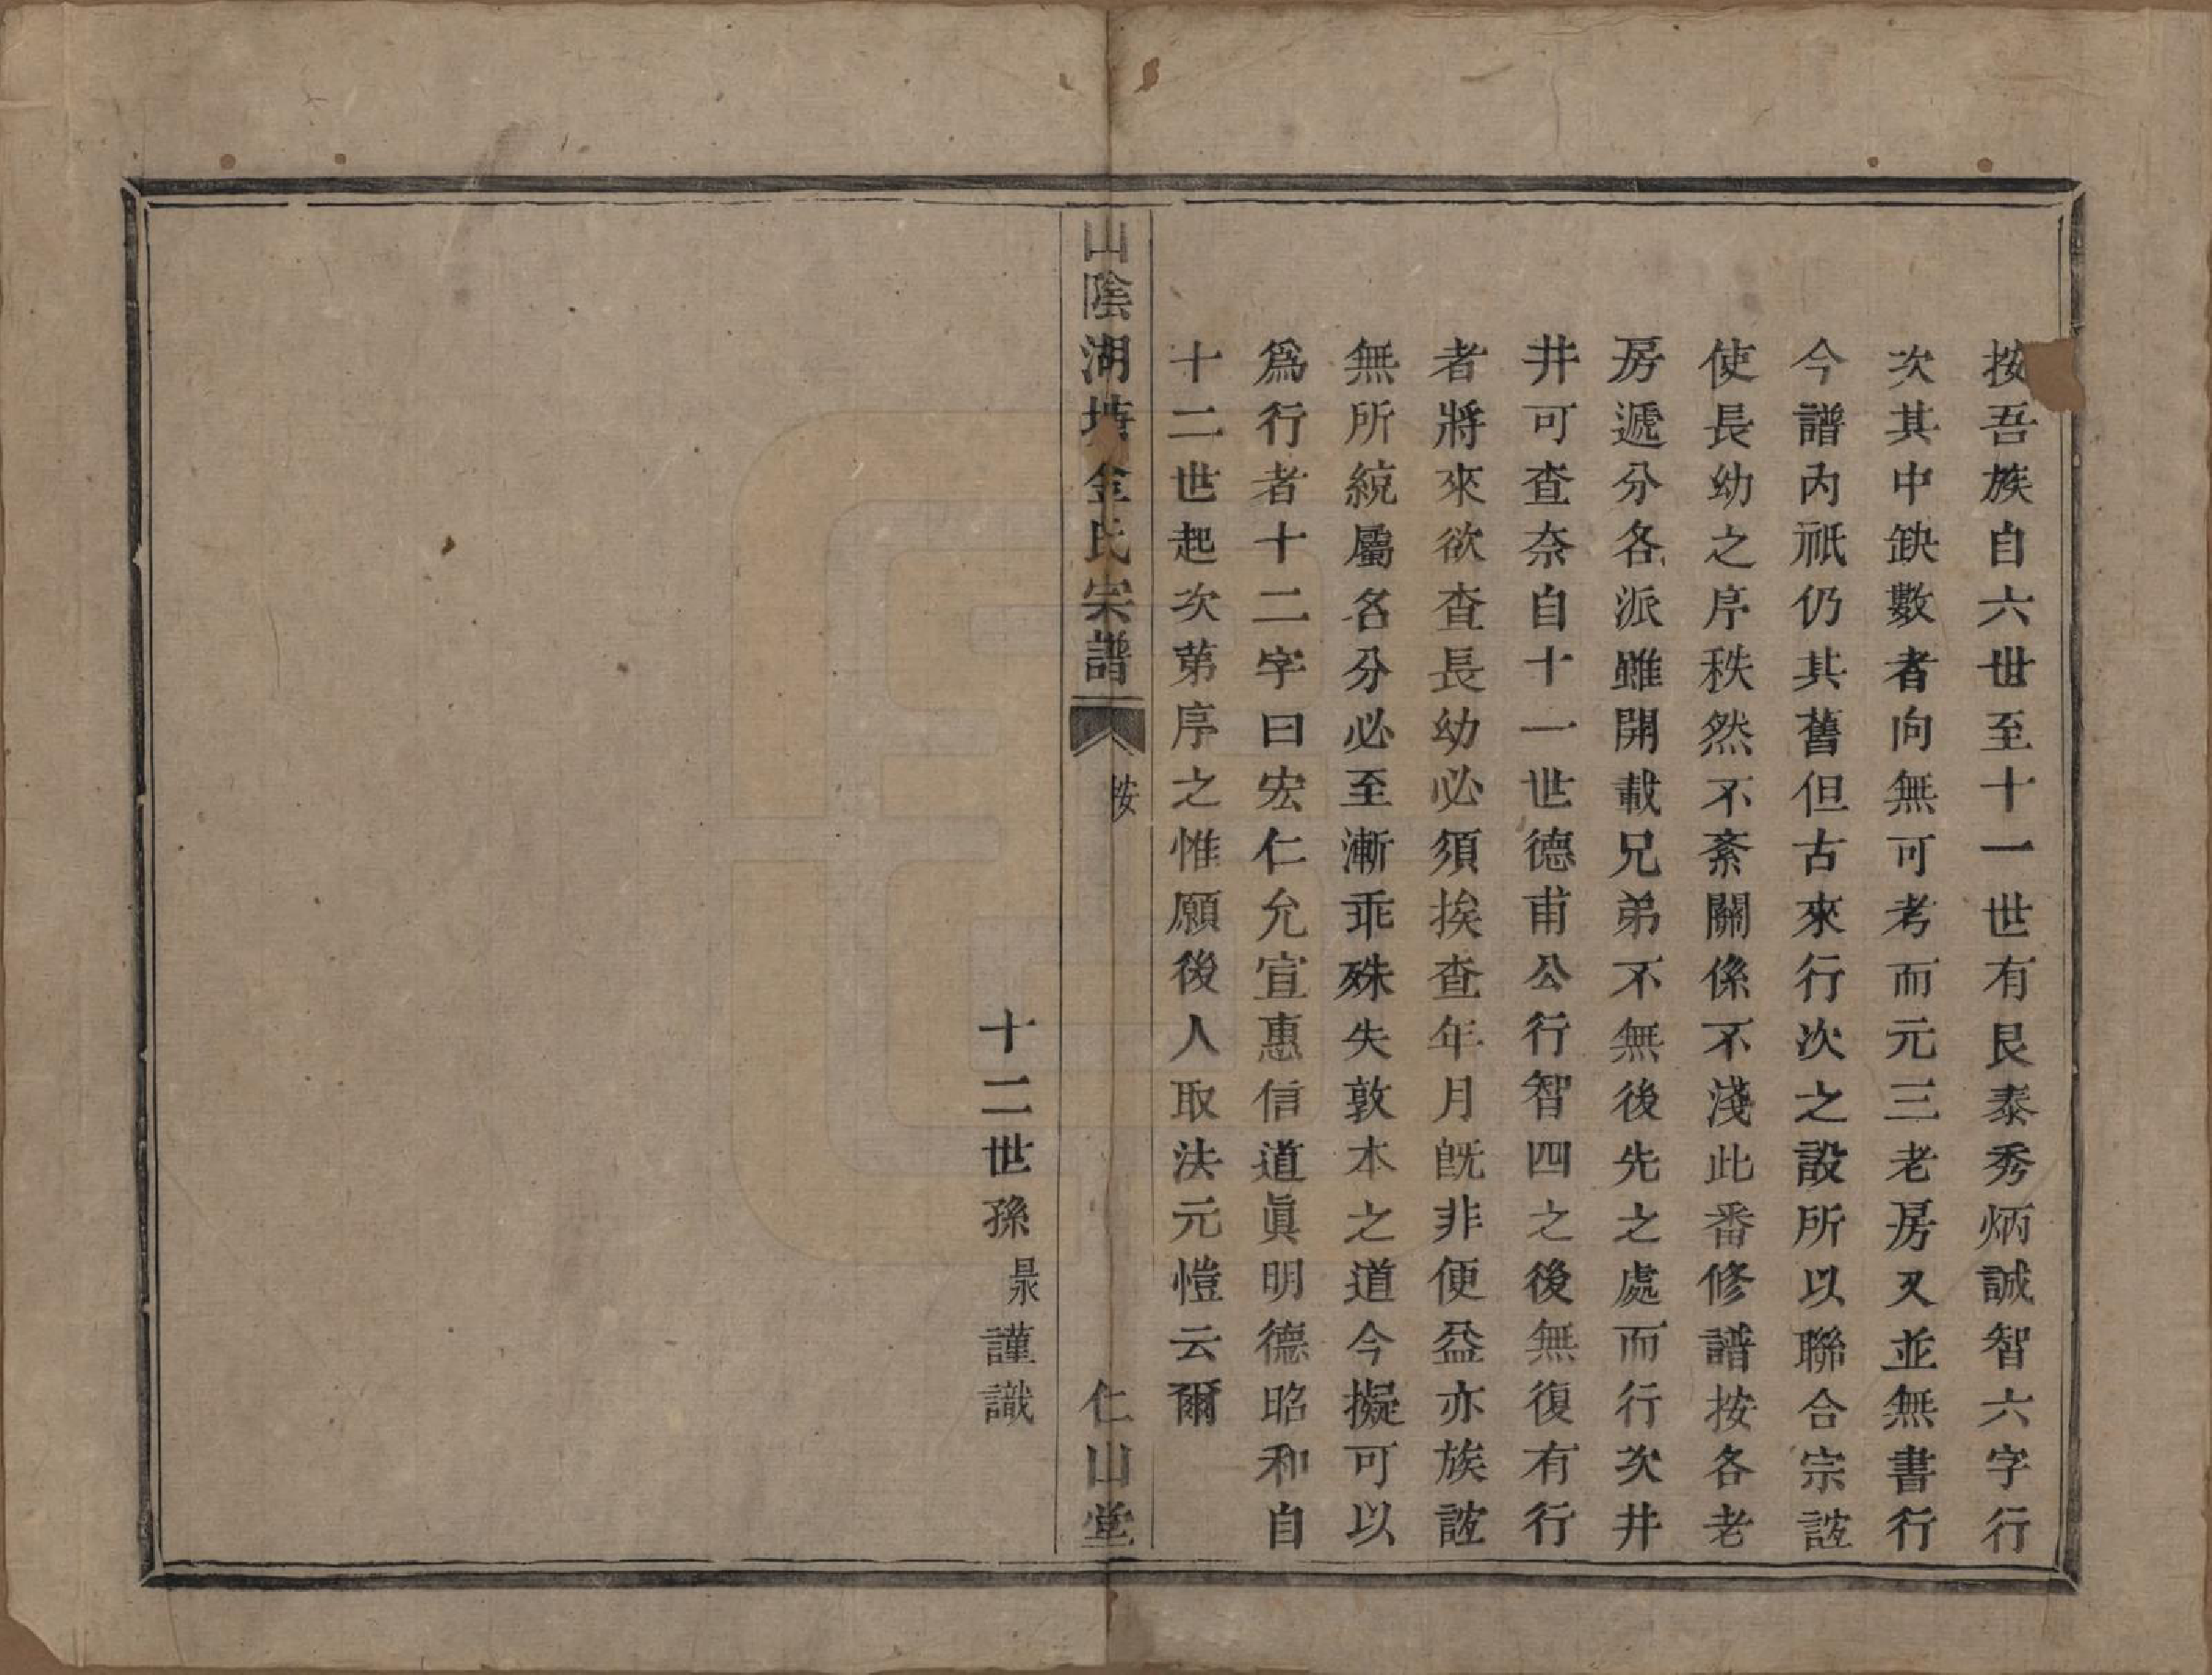 按吾族自六世至十一世有艮泰秀炳誠智六字行
次其中缺數者向無可考而元三老房又並無書行
今譜內祇仍其舊但古來行次之設所以聯合宗誼
使長幼之序秩然不紊關係不淺此番修譜按各老
房遞分各派雖開載兄弟不無後先之處而行次井
井可查奈自十一世德甫公行智四之後無復有行
者將來欲查長幼必須挨查年月既非便益亦族誼
無所統屬名分必至漸乖殊失敦本之道今擬可以
為行者十二字曰宏仁允宣惠信道眞明德昭和自
十二世起次第序之惟願後人取法元愷云爾
山陰湖塘金氏宗譜 按 仁山堂
十二世孫㫤謹識